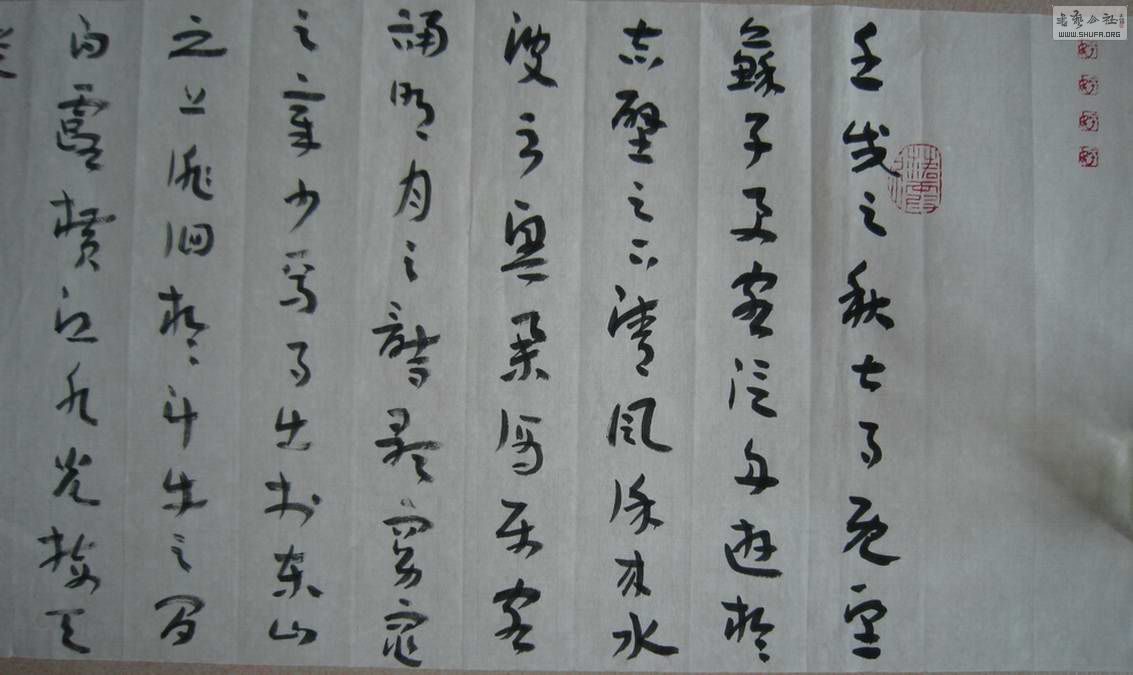 壬戌之秋七月既望
蘇子與客泛舟遊於
赤壁之下清風徐來水
波不興舉酒屬客
誦明月之詩歌窈窕
之章少焉月出於東山
之上徘徊於斗牛之間
白露橫江水光接天
書藝公社
WWW.SHUFA.ORG